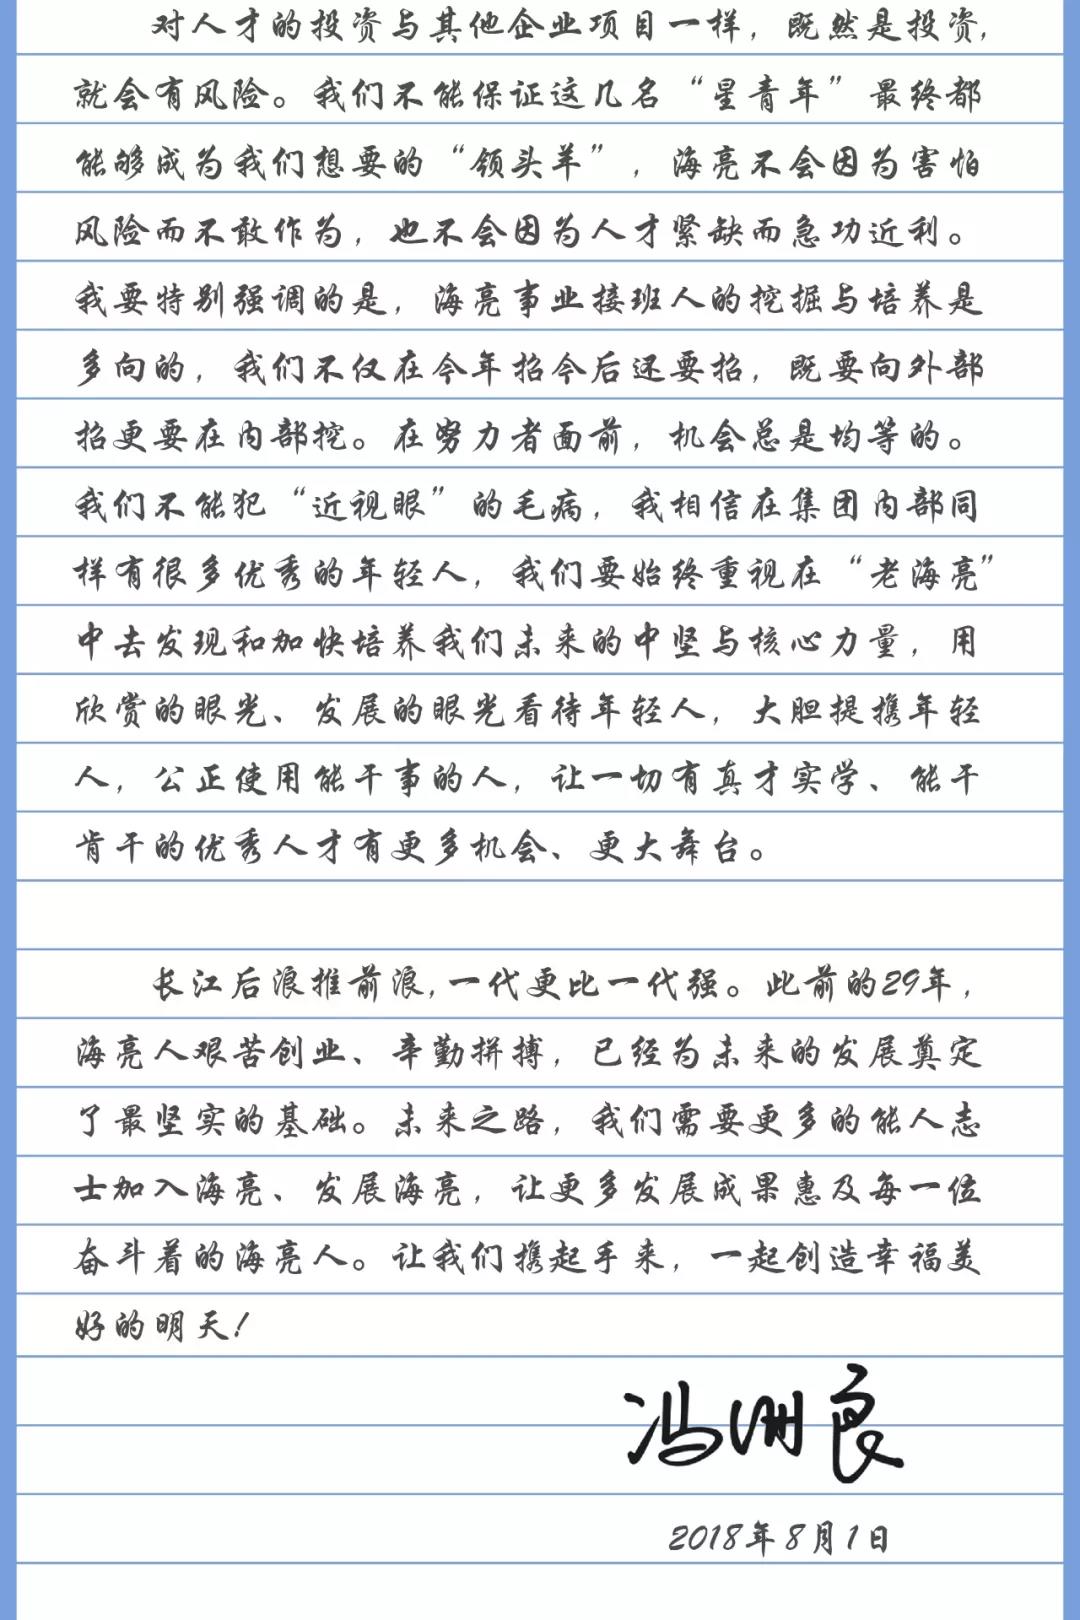 对人才的投资与其他企业项目一样，既然是投资，
就会有风险。我们不能保证这几名“星青年”最终都
能够成为我们想要的“领头羊”，海亮不会因为害怕
风险而不敢作为，也不会因为人才紧缺而急功近利。
我要特别强调的是，海亮事业接班人的挖掘与培养是
多向的，我们不仅在今年招今后还要招，既要向外部
招更要在内部挖。在努力者面前，机会总是均等的。
我们不能犯“近视眼”的毛病，我相信在集团内部同
样有很多优秀的年轻人，我们要始终重视在“老海亮”
中去发现和加快培养我们未来的中坚与核心力量，用
欣赏的眼光、发展的眼光看待年轻人，大胆提携年轻
人，公正使用能干事的人，让一切有真才实学、能干
肯干的优秀人才有更多机会、更大舞台。
长江后浪推前浪，一代更比一代强。此前的29年，
海亮人艰苦创业、辛勤拼搏，已经为未来的发展奠定
了最坚实的基础。未来之路，我们需要更多的能人志
士加入海亮、发展海亮，让更多发展成果惠及每一位
奋斗着的海亮人。让我们携起手来，一起创造幸福美
好的明天！
冯洲良
2018年8月1日